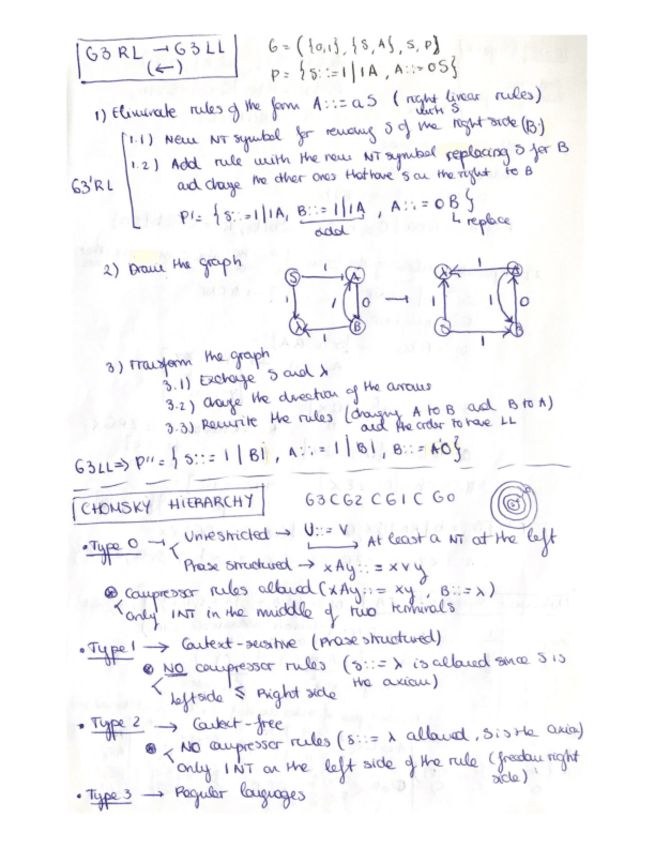 G3RL → G3LL
(←)
G = ({0,1}, {S,A}, S, P)
P = {S::=1|1A, A::=0S}
1) Eliminate rules of the form A::=aS (right linear rules)
with S
1.1) New NT symbol for removing S of the right side (B:)
1.2) Add rule with the new NT symbol replacing S for B
and change the other ones that have S on the right to B
G3'RL
P'= {S::=1|1A, B::=1|1A, A::=0B}
add
↳ replace
2) Draw the graph
S 1 A
1 1 0
λ 1 B
→
λ 1 A
1 1 0
S 1 B
3) Transform the graph
3.1) Exchange S and λ
3.2) Change the direction of the arrows
3.3) Rewrite the rules (changing A to B and B to A)
and the order to have LL
G3LL ⇒ P''= {S::= 1|B1, A::= 1|B1, B::= A0}
CHOMSKY HIERARCHY
G3 C G2 C G1 C G0
• Type 0 → Unrestricted → U::= V
At least a NT at the left
Phase structured → xAy::= xvy
Compressor rules allowed (xAy::= xy, B::=λ)
only 1NT in the muddle of two terminals
• Type 1 → Context-sensitive (Phase structured)
NO compressor rules (S::= λ is allowed since S is
the axiom)
leftside ≤ Right side
• Type 2 → Context-free
NO compressor rules (S::= λ allowed, S is the axio)
only 1NT on the left side of the rule (freedom right
side)
• Type 3 → Regular languages